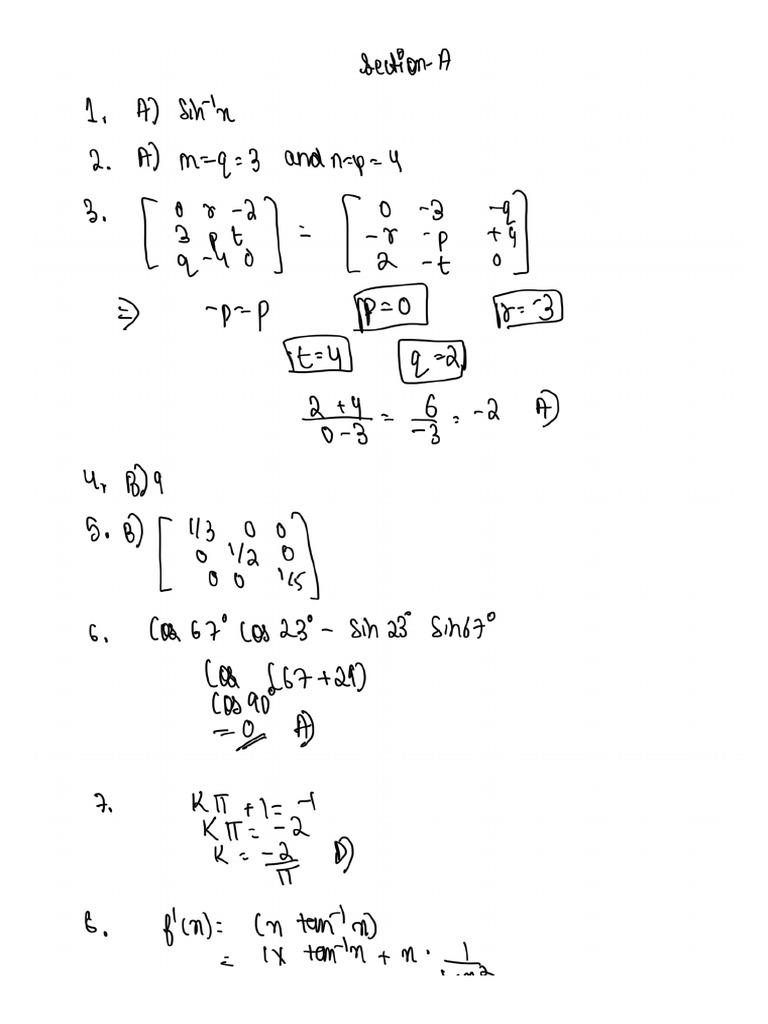 Section-A
1. A) Sin⁻¹x
2. A) m=q=3 and n=p=4
3. [0 r -2; 3 p t; q -4 0] = [0 -3 -q; -r -p +4; 2 -t 0]
⇒ -p=p p=0 r=-3
t=4 q=2
(2+4)/(0-3) = 6/-3 = -2 A)
4. B) 9
5. B) [1/3 0 0; 0 1/2 0; 0 0 1/5]
6. Cos 67° Cos 23° - Sin 23° Sin 67°
Cos (67+23)
Cos 90°
= 0 A)
7. Kπ + 1 = -1
Kπ = -2
K = -2/π D)
8. f'(x) = (x tan⁻¹ x)
= 1× tan⁻¹x + x · 1/